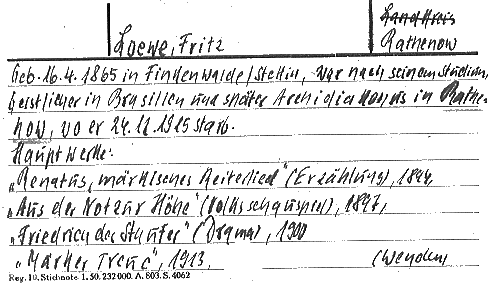 Landkreis
Loewe, Fritz Rathenow
Geb. 16.4.1865 in Findenwalde/Stettin, war nach seinem Studium
Geistlicher in Brasilien und später Archidiakonus in Rathe-
now, wo er 24.12.1915 starb.
Hauptwerke:
„Renatus, märkisches Reiterlied" (Erzählung), 1894,
„Aus der Not zur Höhe" (Volksschauspiel), 1897,
„Friedrich der Staufer" (Drama), 1900
„Märker Treue", 1913. (Wenden)
Reg. 10. Stichnote 1. 50. 232000. A. 803. S. 4062